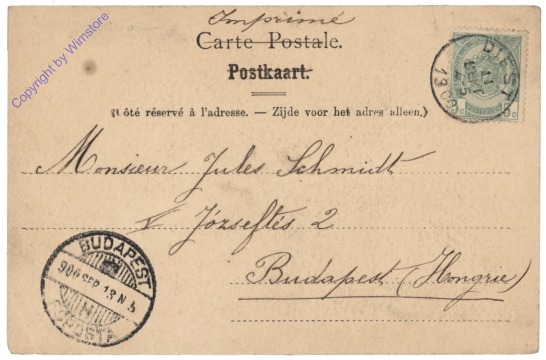 Imprimé
Carte Postale.
Postkaart.
(Côté réservé à l'adresse. — Zijde voor het adres alleen.)
DIEST
11
1900
5c
5c
Monsieur Jules Schmidt
V Józseftér 2
Budapest (Hongrie)
BUDAPEST
900 SEP 13 N 5
FŐPOSTA
Copyright by Wimstore